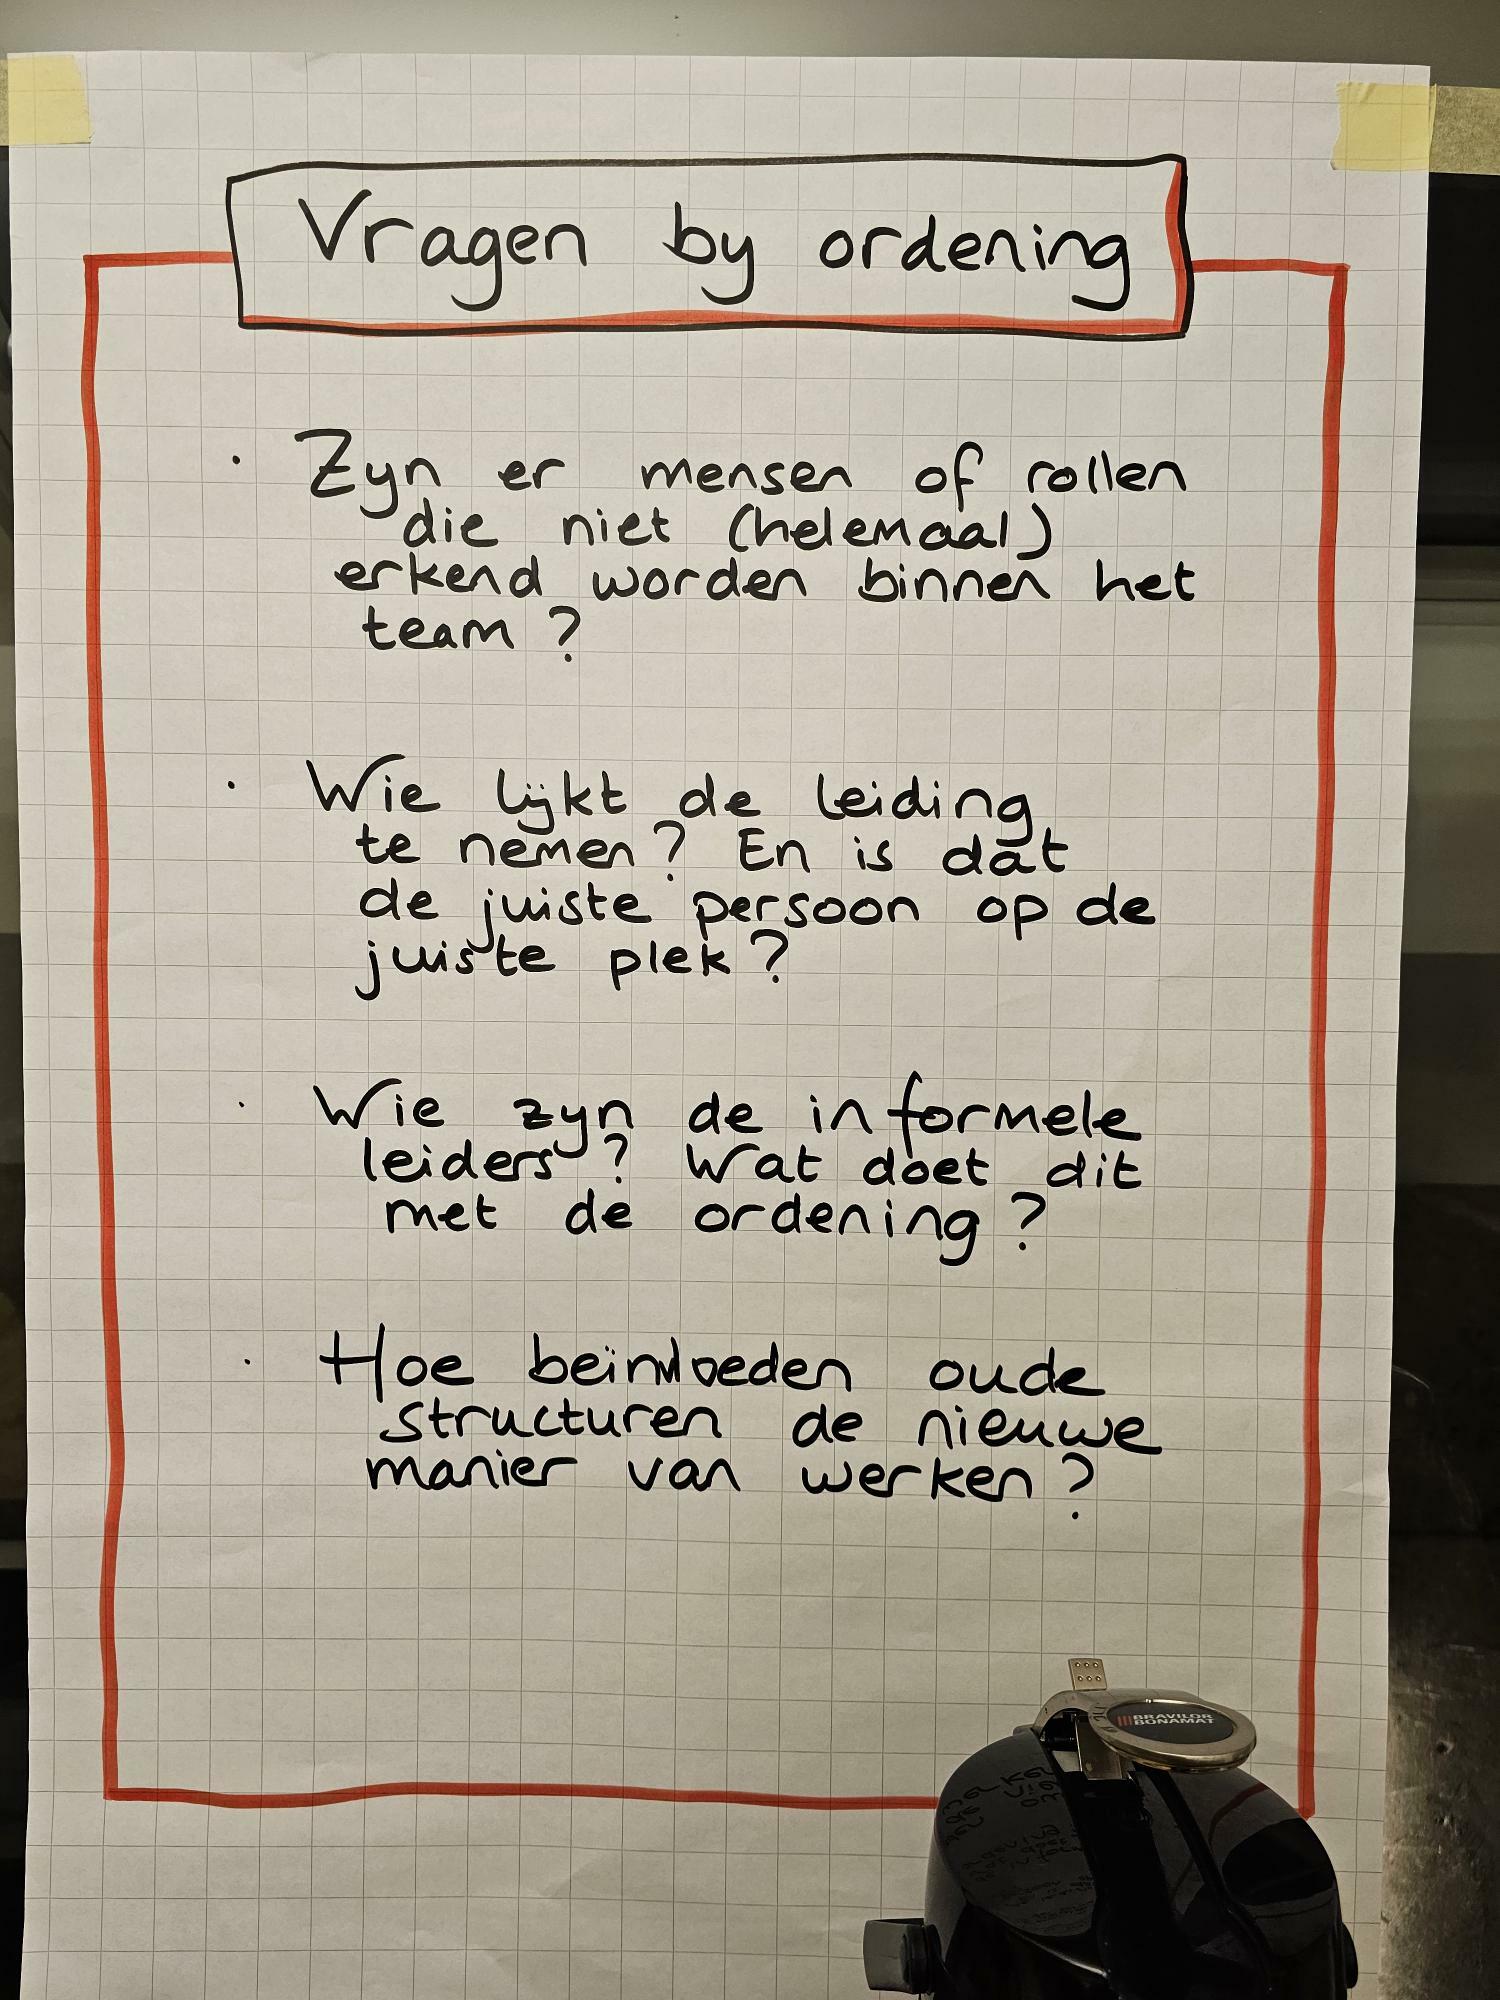 Vragen by ordening
· Zyn er mensen of rollen
die niet (helemaal)
erkend worden binnen het
team?
· Wie lijkt de leiding
te nemen? En is dat
de juiste persoon op de
juiste plek?
· Wie zyn de informele
leiders? Wat doet dit
met de ordening?
· Hoe beïnvloeden oude
structuren de nieuwe
manier van werken?
BRAVILOR
BONAMAT